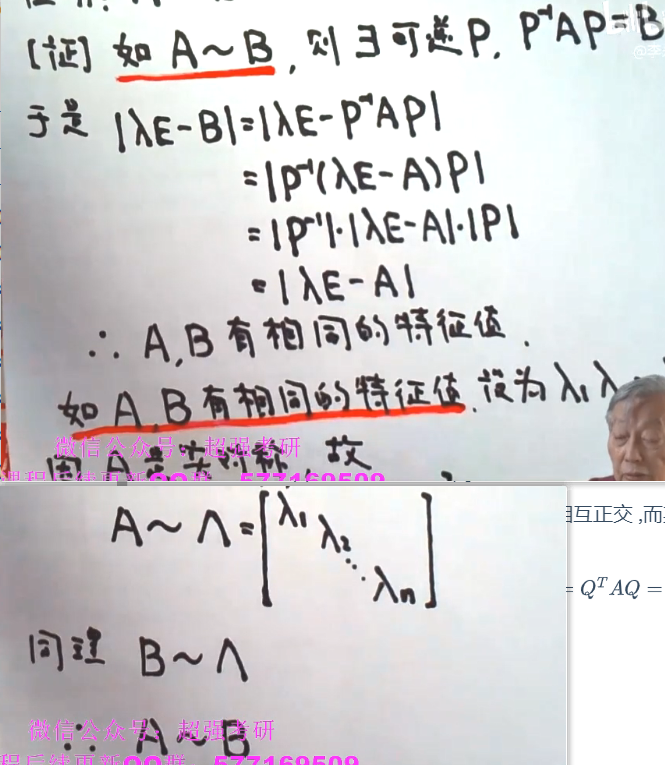 [证] 如 A~B, 则∃可逆P, P⁻¹AP=B
于是 |λE-B|=|λE-P⁻¹AP|
=|P⁻¹(λE-A)P|
=|P⁻¹|·|λE-A|·|P|
=|λE-A|
∴ A,B有相同的特征值.
如A,B有相同的特征值,设为λ₁ λ
微信公众号:超强考研
因A是实对称,故
课程后续更新QQ群 577169509
A~Λ=[λ₁ λ₂ ⋱ λn]
相互正交 ,而
= QᵀAQ =
同理 B~Λ
微信公众号:超强考研
∴ A~B
程后续更新QQ群 577169509